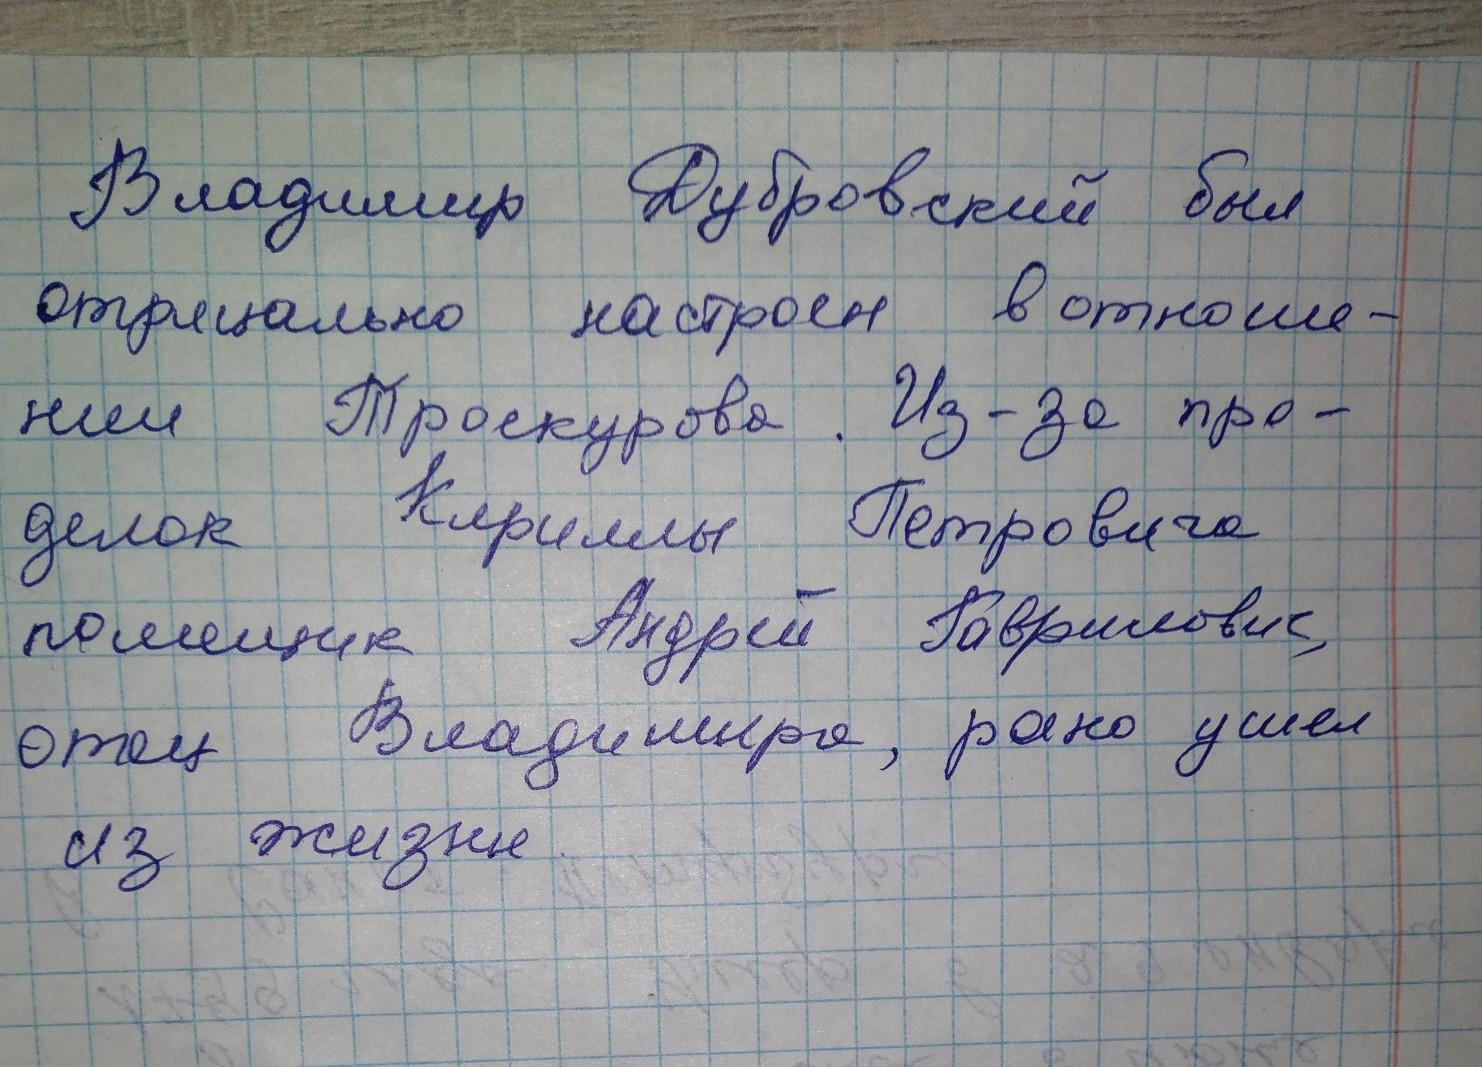 Владимир Дубровский был
отрицально настроен в отноше-
нии Троекурова. Из-за про-
делок Кириллы Петровича
помещик Андрей Гаврилович,
отец Владимира, рано ушел
из жизни